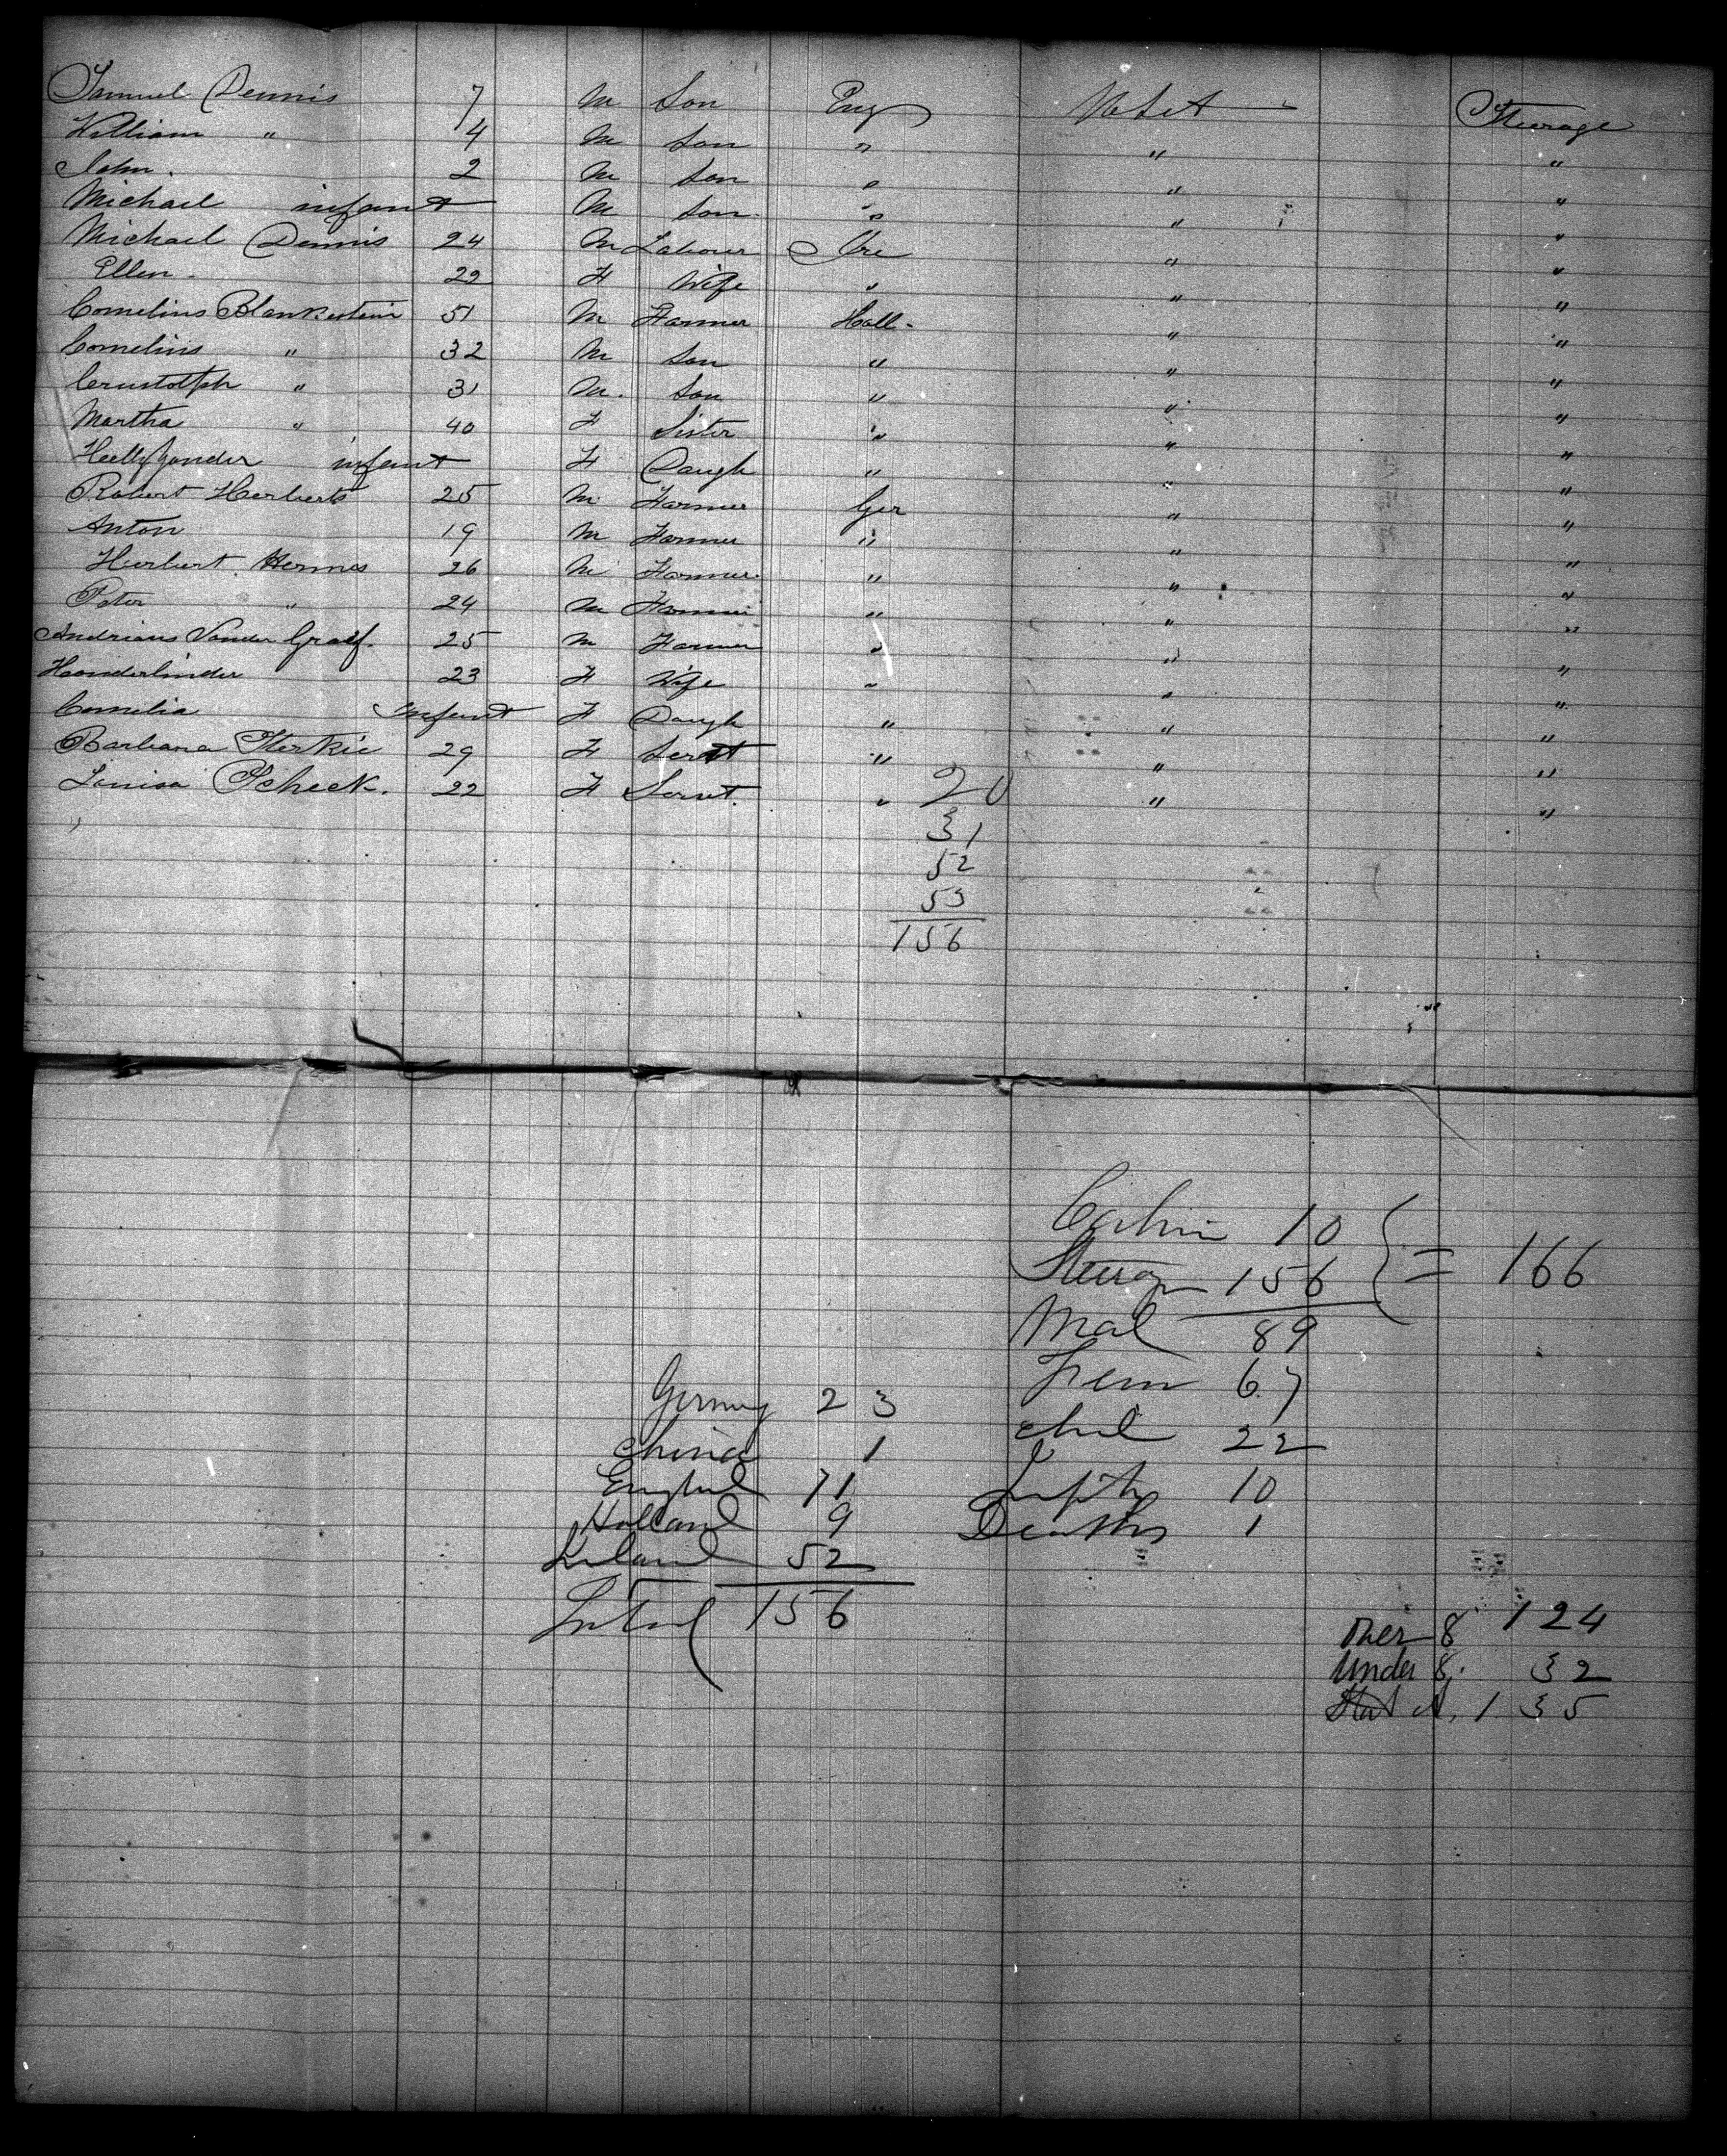 Samuel Dennis 7 M Son Eng U S A Steerage
William " 4 M Son " " "
John. 2 M Son " " "
Michael infant M Son. " " "
Michael Dennis 24 M Labour Ire " "
Ellen 22 F Wife " " "
Cornelius Blankestein 51 M Farmer Holl. " "
Cornelius " 32 M Son " " "
" 31 M. Son " " "
Martha " 40 F Sister " " "
infant F Daugh " " "
Robert Herberts 25 M Farmer Ger " "
Anton 19 M Farmer " " "
Herbert Hermes 26 M Farmer. " " "
Peter " 24 M Farmer " " "
Andrians Vander Graef. 25 M Farmer " " "
23 F Wife " " "
Cornelia Infant F Daugh " " "
Barbara 29 F Servt " " "
Louisa Scheck. 22 F Servt. " 20 " "
"
31
52
53
156
Cabin 10
Steerag 156 } = 166
Mal 89
Fem 67
Germy 23 Chil 22
China 1
England 71 Infts 10
Holland 9 Deaths 1
Ireland 52
Total 156
Over 8 124
Under 8. 32
Stat A. 135